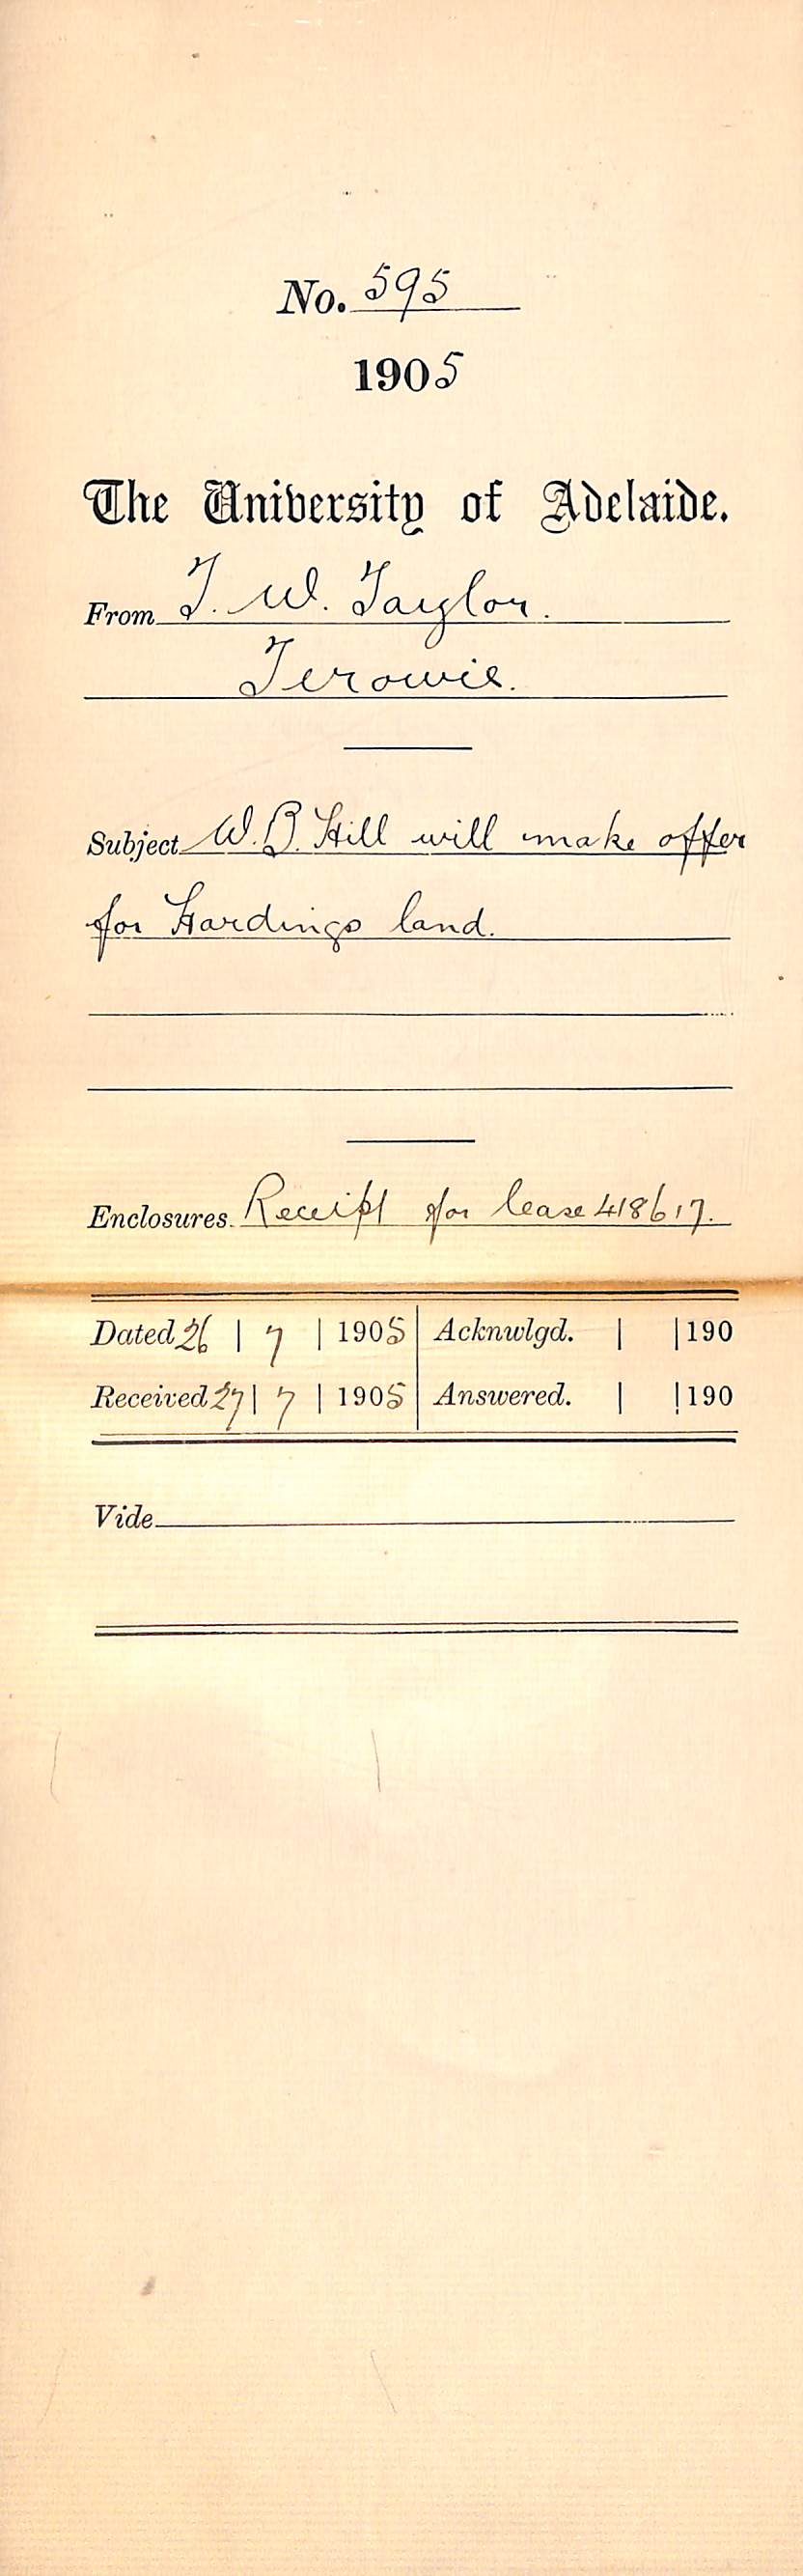 No. 595
1905
The University of Adelaide.
From T. W. Taylor.
Terowie.
Subject W. B. Hill will make offer
for Hardings land.
Enclosures. Receipt for lease 418617.
Dated 26 | 7 | 1905 | Acknwlgd. | | 190
Received 27 | 7 | 1905 | Answered. | | 190
Vide